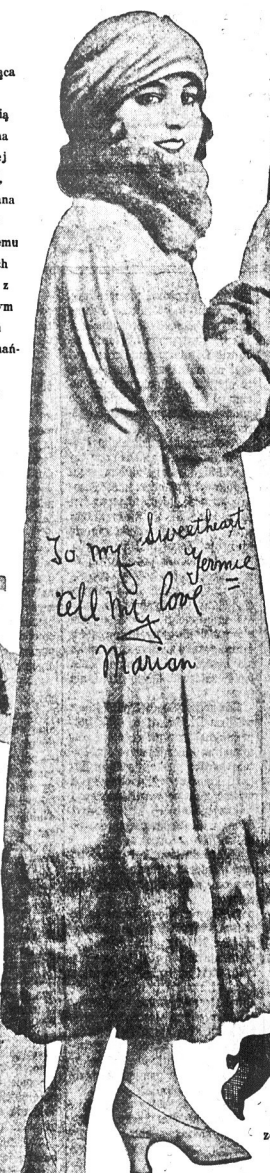 ąca
ią
na
j
,
ana
emu
h
z
ym
nań-
To my Sweetheart
Yermie
All my love
Marian
z